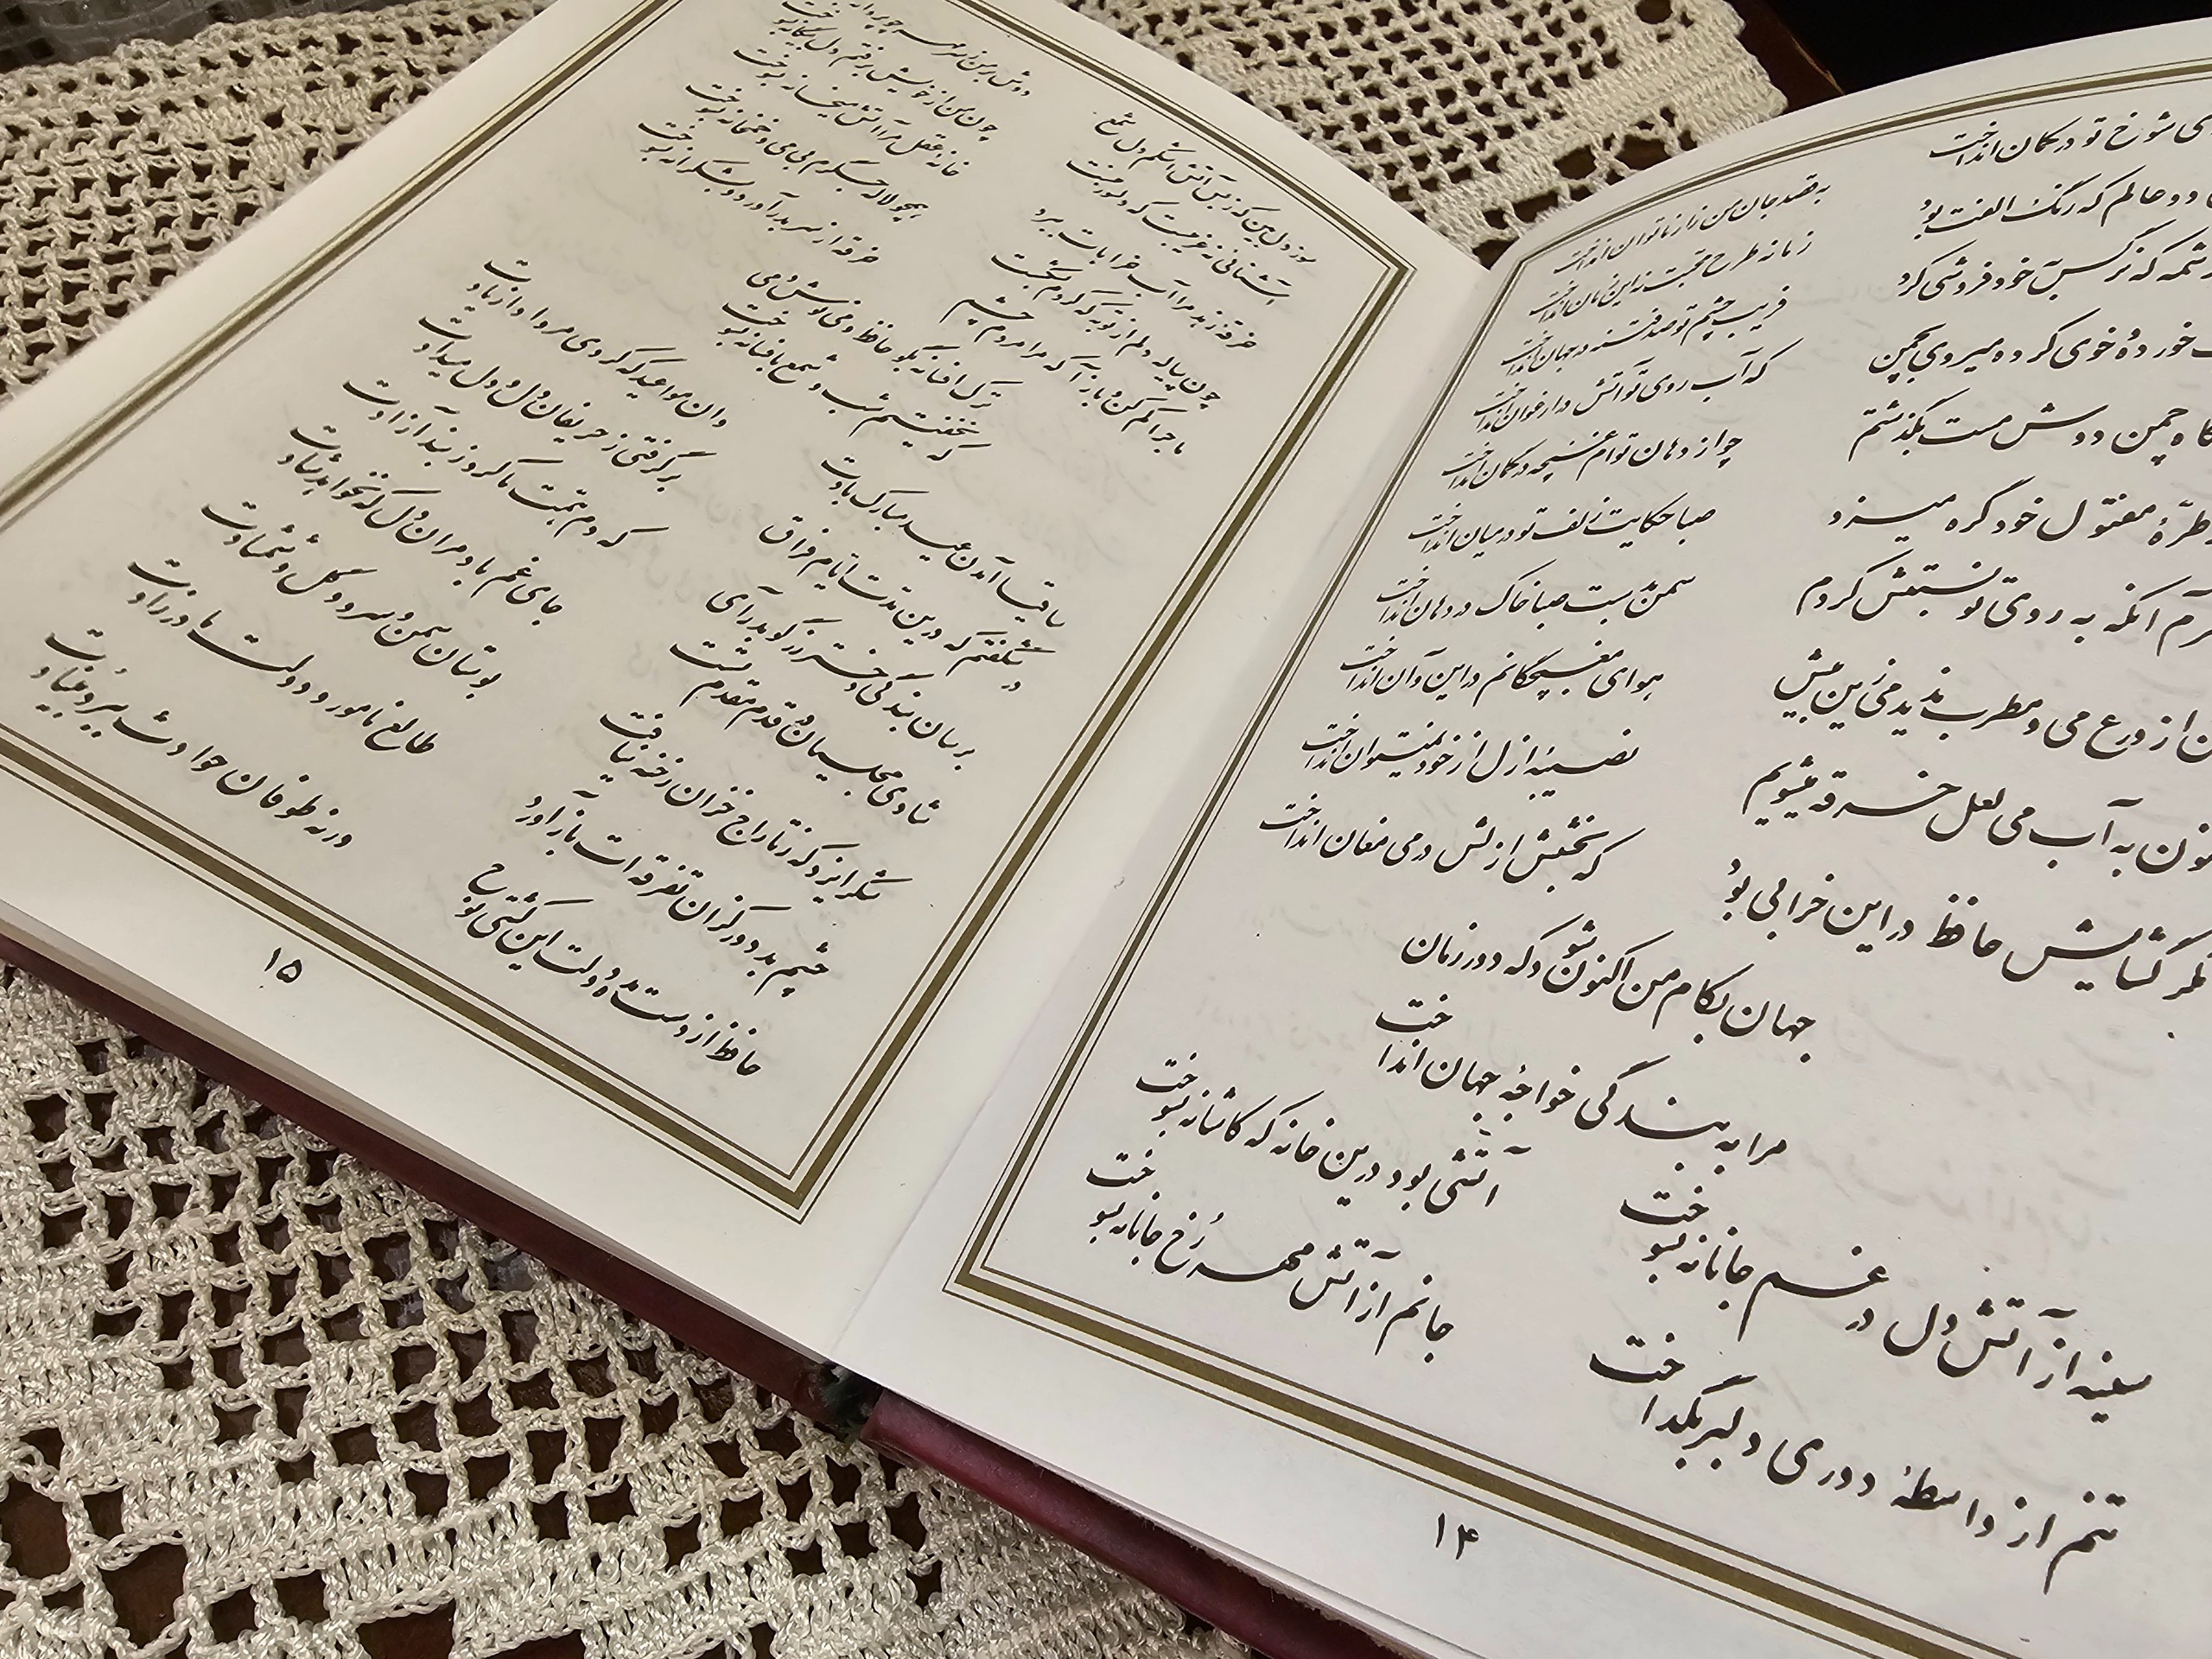 ی شوخ تو در کمان انداخت به قصد جان من زار ناتوان انداخت
دو عالم که رنگ الفت بود زمانه طرح محبت نه این زمان انداخت
که نرگس به خودفروشی کرد فریب چشم تو صد فتنه در جهان انداخت
خورده و خوی کرده میروی بچمن که آب روی تو آتش در ارغوان انداخت
چمن دوش مست بگذشتم چو از دهان توام غنچه در گمان انداخت
طرّهٔ مفتول خود گره میزد صبا حکایت زلف تو در میان انداخت
آنکه به روی تو نسبتش کردم سمن بدست صبا خاک در دهان انداخت
از ورع می و مطرب ندیدمی زین پیش هوای مغبچگانم در این و آن انداخت
به آب می لعل خرقه میشویم نصیبهٔ ازل از خود نمیتوان انداخت
گشایش حافظ در این خرابی بود که بخشش ازلش در می مغان انداخت
جهان بکام من اکنون شود که دور زمان
مرا به بندگی خواجهٔ جهان انداخت
سینه از آتش دل در غم جانانه بسوخت آتشی بود درین خانه که کاشانه بسوخت
تنم از واسطهٔ دوری دلبر بگداخت جانم از آتش مهر رُخ جانانه بسوخت
۱۴
سوز دل بین که ز بس آتش اشکم دل شمع دوش بر من ز سر مهر چو پروانه بسوخت
آشنائی نه غریبست که دلسوز منست چون من از خویش برفتم دل بیگانه بسوخت
خرقه زهد مرا آب خرابات ببرد خانه عقل مرا آتش میخانه بسوخت
چون پیاله دلم از توبه که کردم بشکست همچو لاله جگرم بی می و خمخانه بسوخت
ماجرا کم کن و باز آ که مرا مردم چشم خرقه از سر بدر آورد و بشکرانه بسوخت
ترک افسانه بگو حافظ و می نوش دمی
که نخفتیم شب و شمع بافسانه بسوخت
ساقیا آمدن عید مبارک بادت وان مواعید که کردی مرواد از یادت
در شگفتم که درین مدت ایام فراق برگرفتی ز حریفان دل و دل میدادت
برسان بندگی دختر رز گو بدر آی که دم همت ما کرد ز بند آزادت
شادی مجلسیان در قدم مقدم تست جای غم باد مر آن دل که نخواهد شادت
شکر ایزد که ز تاراج خزان رخنه نیافت بوستان سمن و سرو و گل و شمشادت
چشم بد دور کز آن تفرقه‌ات باز آورد طالع نامور و دولت مادرزادت
حافظ از دست مده دولت این کشتی نوح ورنه طوفان حوادث ببرد بنیادت
۱۵